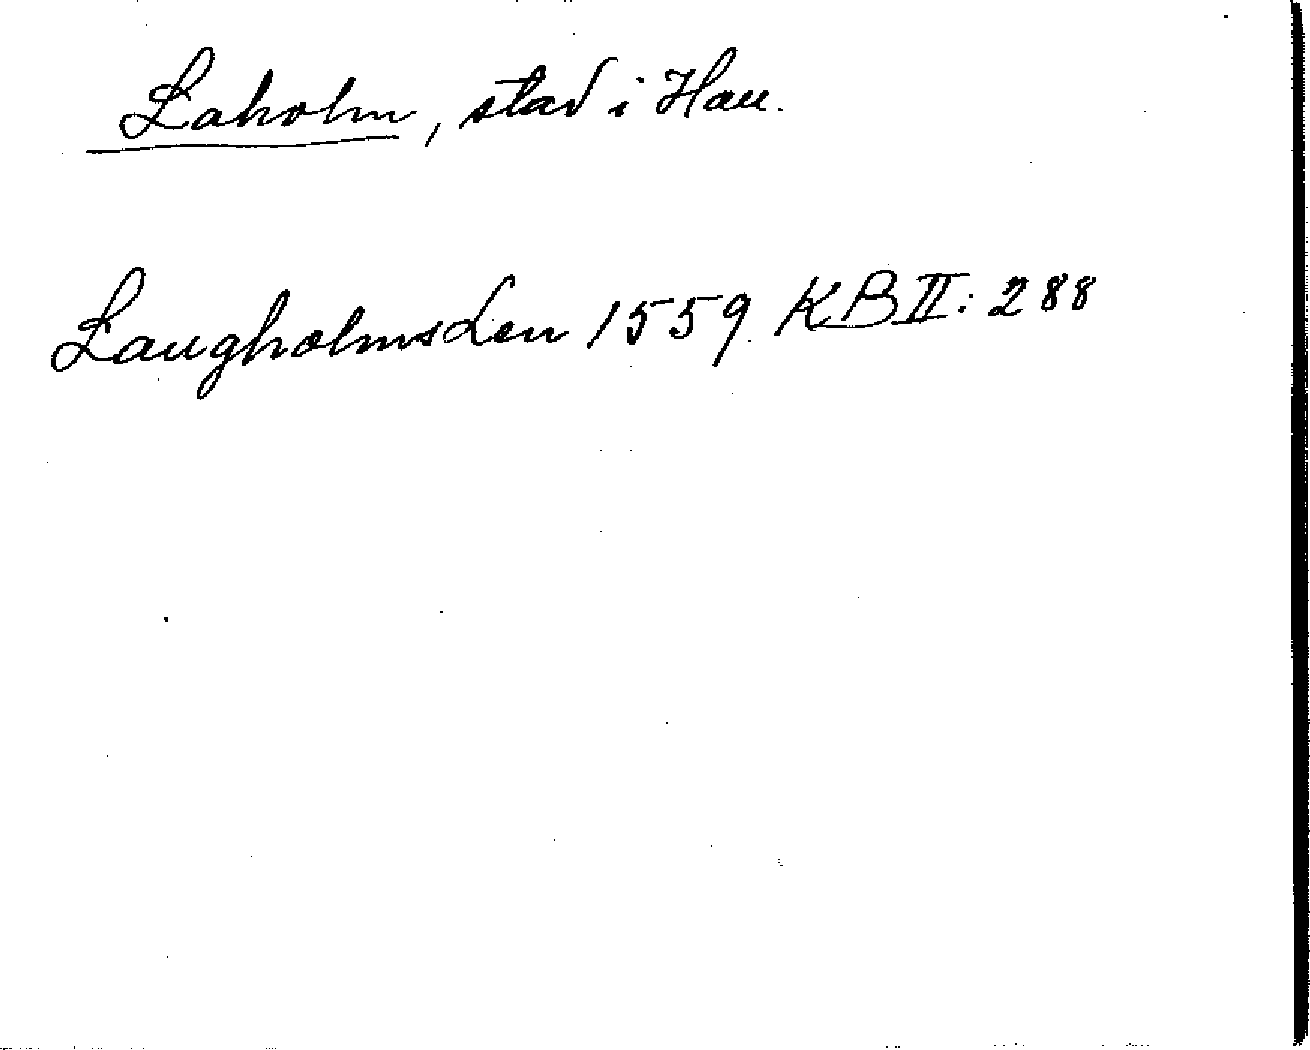 Laholm, stad i Hall.
Laugholms Len 1559. KB II: 288